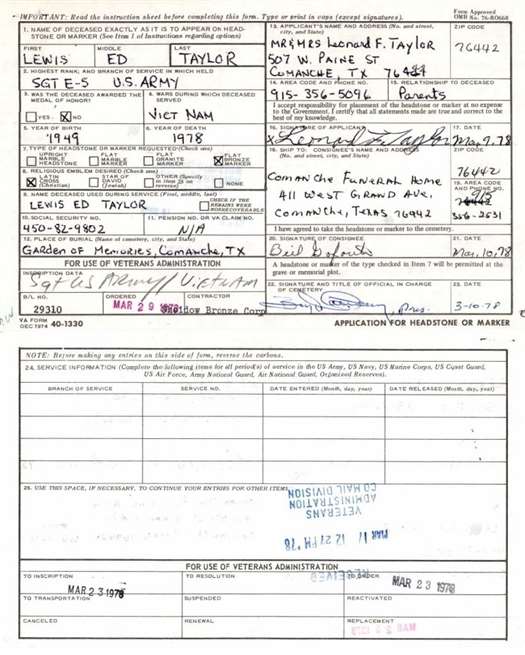 IMPORTANT: Read the instruction sheet before completing this form. Type or print in caps (except signatures).
Form Approved
OMB No. 76-R0668
1. NAME OF DECEASED EXACTLY AS IT IS TO APPEAR ON HEAD-
STONE OR MARKER (See Item 1 of Instructions regarding options)
FIRST MIDDLE LAST
LEWIS ED TAYLOR
2. HIGHEST RANK, AND BRANCH OF SERVICE IN WHICH HELD
SGT E-5 U.S. ARMY
3. WAS THE DECEASED AWARDED THE MEDAL OF HONOR?
YES X NO
4. WARS DURING WHICH DECEASED SERVED
VIET NAM
5. YEAR OF BIRTH
1949
6. YEAR OF DEATH
1978
7. TYPE OF HEADSTONE OR MARKER REQUESTED (Check one)
UPRIGHT MARBLE HEADSTONE
FLAT MARBLE MARKER
FLAT GRANITE MARKER
X FLAT BRONZE MARKER
8. RELIGIOUS EMBLEM DESIRED (Check one)
X LATIN CROSS (Christian)
STAR OF DAVID (Jewish)
OTHER (Specify in item 25 on reverse)
NONE
9. NAME DECEASED USED DURING SERVICE (First, middle, last)
LEWIS ED TAYLOR
CHECK IF THE REMAINS WERE NONRECOVERABLE
10. SOCIAL SECURITY NO.
450-82-9802
11. PENSION NO. OR VA CLAIM NO.
N/A
12. PLACE OF BURIAL (Name of cemetery, city, and state)
GARDEN OF MEMORIES, COMANCHE, TX
FOR USE OF VETERANS ADMINISTRATION
INSCRIPTION DATA
Sgt US ARMY / VIETNAM
B/L NO.
29310
ORDERED
MAR 29 1978
CONTRACTOR
Sheidow Bronze Corp
13. APPLICANT'S NAME AND ADDRESS (No. and street, city, and state)
MR & MRS Leonard F. TAYLOR
507 W. PAINE ST
COMANCHE, TX 76442
76442
14. AREA CODE AND PHONE NO.
915-356-5096
15. RELATIONSHIP TO DECEASED
Parents
I accept responsibility for placement of the headstone or marker at no expense to the Government. I certify that all statements made are true and correct to the best of my knowledge.
16. SIGNATURE OF APPLICANT
17. DATE
Mar 9, 78
18. SHIP TO: CONSIGNEE'S NAME AND ADDRESS
(No. and street, city, and state)
COMANCHE FUNERAL HOME
411 WEST GRAND AVE.
COMANCHE, TEXAS 76442
76442
19. AREA CODE AND PHONE NO.
915
356-2631
I have agreed to take the headstone or marker to the cemetery.
20. SIGNATURE OF CONSIGNEE
21. DATE
Mar, 10, 78
A headstone or marker of the type checked in Item 7 will be permitted at the grave or memorial plot.
22. SIGNATURE AND TITLE OF OFFICIAL IN CHARGE OF CEMETERY
Pres.
23. DATE
3-10-78
VA FORM
DEC 1974 40-1330
APPLICATION FOR HEADSTONE OR MARKER
NOTE: Before making any entries on this side of form, reverse the carbons.
24. SERVICE INFORMATION (Complete the following items for all period(s) of service in the US Army, US Navy, US Marine Corps, US Coast Guard,
US Air Force, Army National Guard, Air National Guard, Organized Reserves).
BRANCH OF SERVICE SERVICE NO. DATE ENTERED (Month, day, year) DATE RELEASED (Month, day, year)
25. USE THIS SPACE, IF NECESSARY, TO CONTINUE YOUR ENTRIES FOR OTHER ITEMS
CO MAIL DIVISION
ADMINISTRATION
VETERANS
MAR 17 12 27 PM '78
RECEIVED
FOR USE OF VETERANS ADMINISTRATION
TO INSCRIPTION TO RESOLUTION TO ORDER
MAR 23 1978 MAR 23 1978
TO TRANSPORTATION SUSPENDED REACTIVATED
CANCELED RENEWAL REPLACEMENT